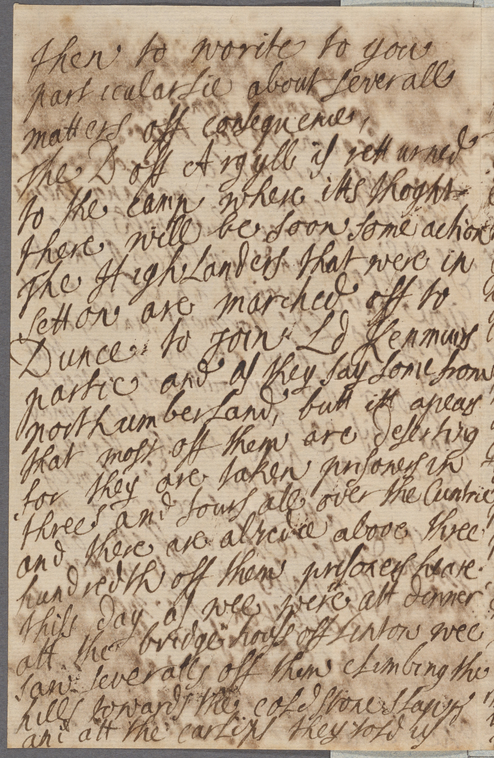 then to worite to you
particularlie about severall
matters off consequence,
the D off Argyll is retturned
to the camp where itts thoght
there will be soon some action
The HighLanders that were in
Setton are marched off to
Dunce, to join Ld Kenmurs
partie and as they say some from
northumberland, butt itt apears
that most off them are deserting
for they are taken prisoners in
threes and fours all over the Cuntrie
and there are alredie above three
hundredth off them prisoners heare
this day as wee were att dinner
att the bridge hous off Linton wee
saw severalls off them climbing the
hills towards the coldstone
and att the carlips they told us